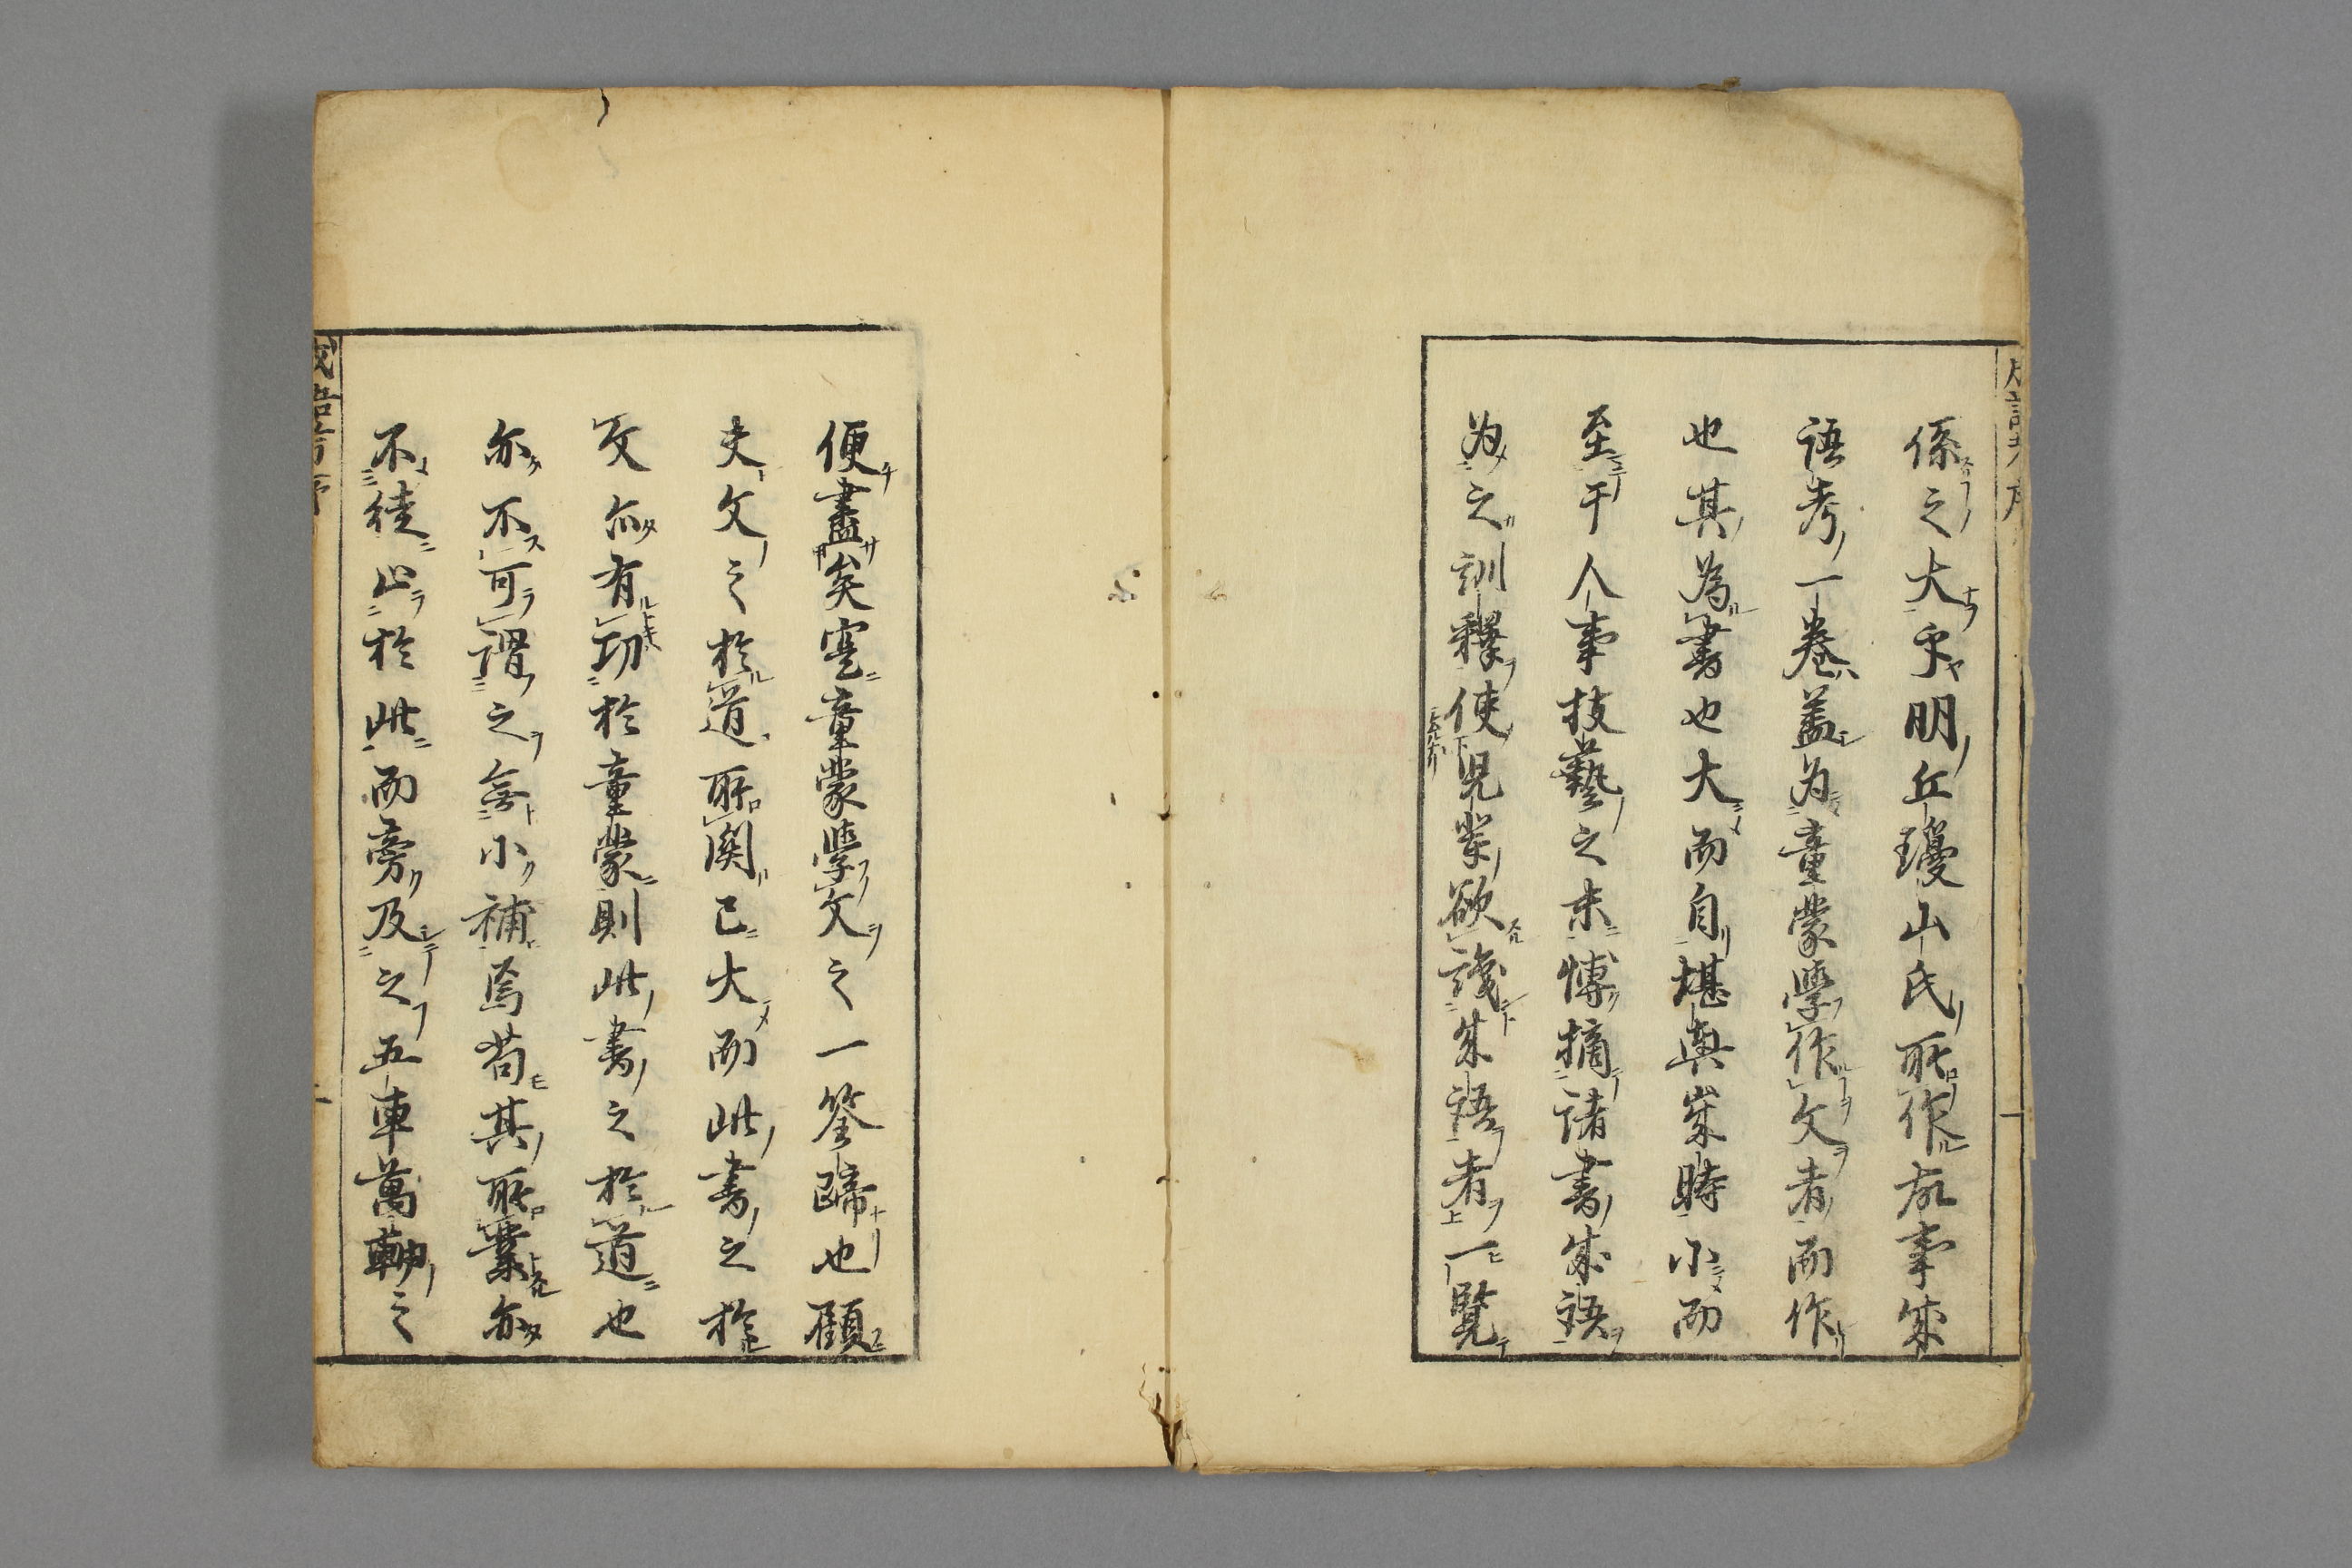 係之大乎明丘瓊山氏所作故事成
語考一卷盖为童蒙學作文者而作
也其為書也大而自堪輿歲時小而
至于人事技藝之末博摘諸書成語
为之訓釋使兒輩欲識成語者一覧
便盡矣寔童蒙學文之一筌蹄也顧
夫文之於道所関已大而此書之於
文亦有功於童蒙則此書之於道也
亦不可謂之無小補焉苟其所業亦
不徒止於此而旁及之五車萬軸之
成語考序